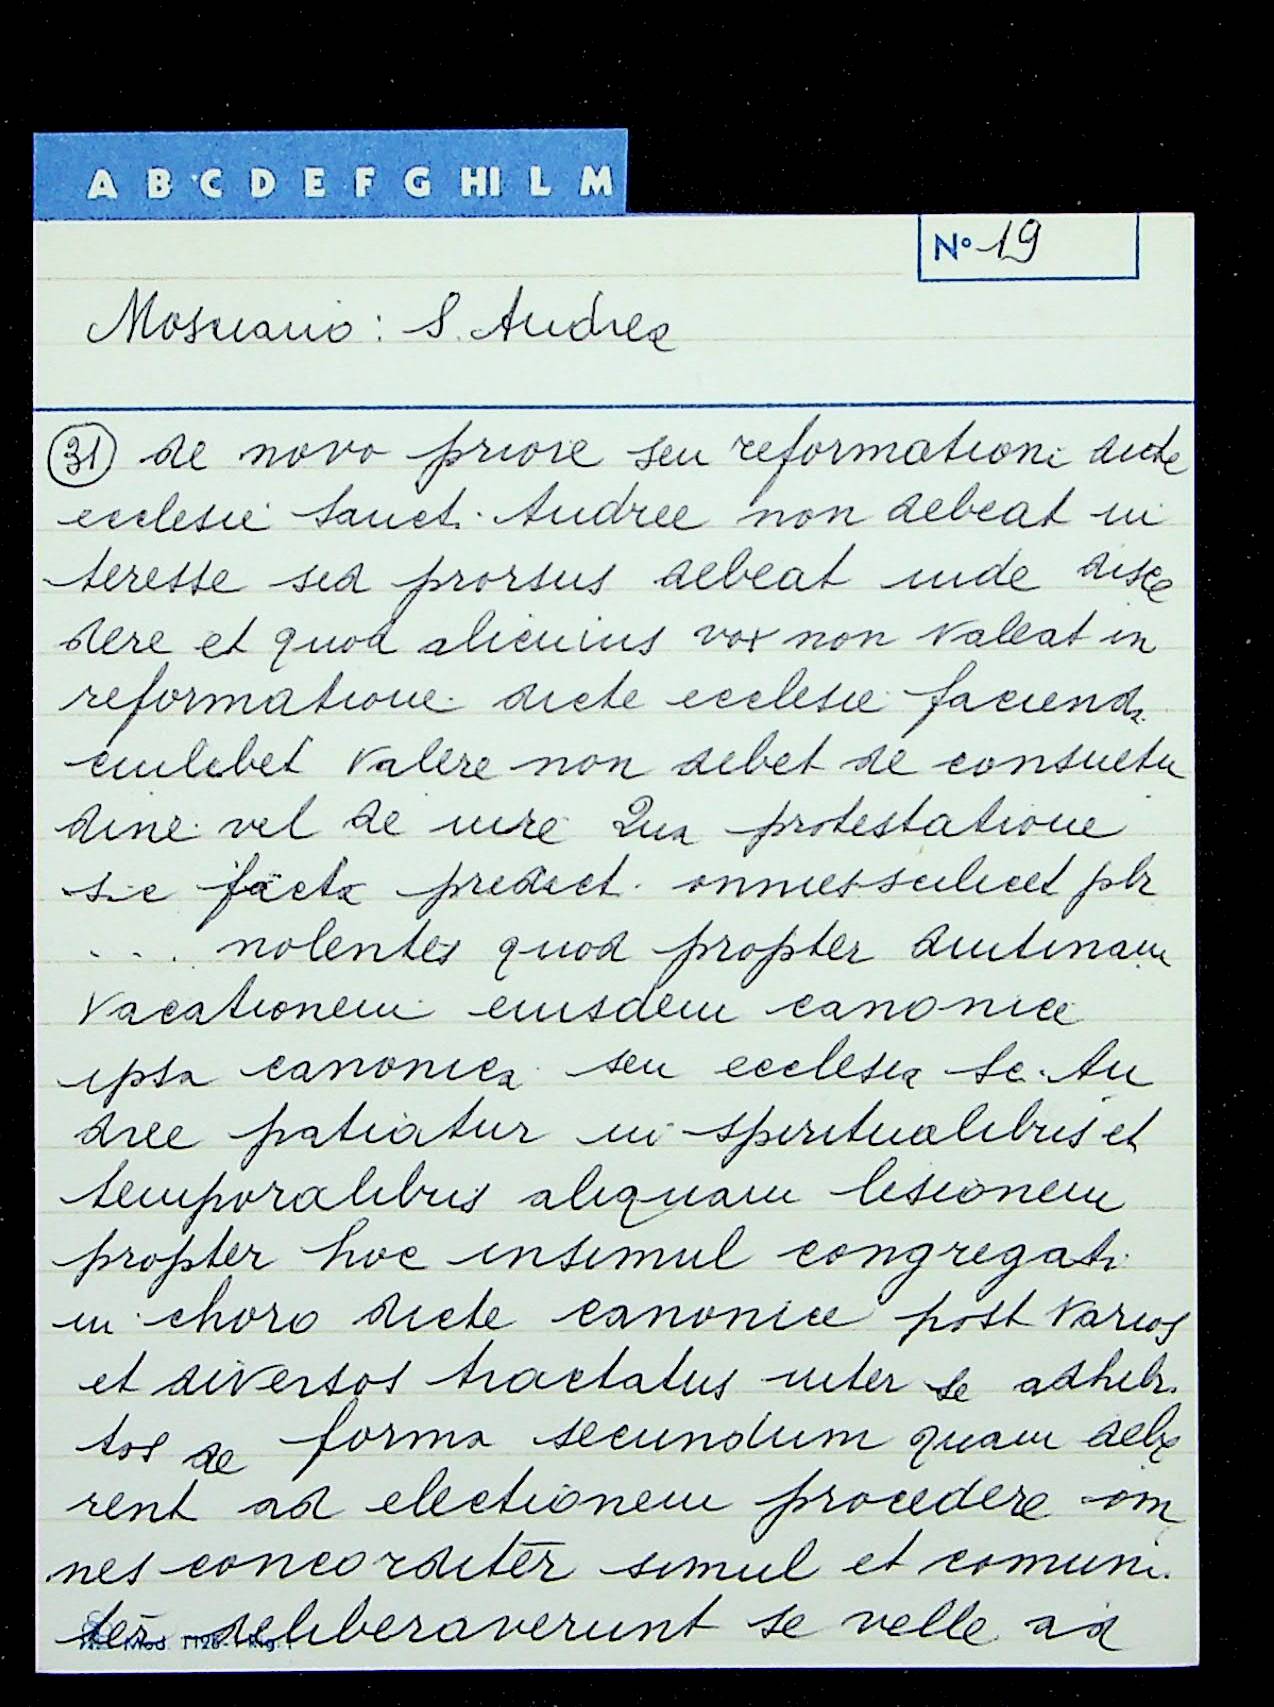 A B C D E F G HI L M
N° 19
Mosciano: S. Andrea
31 de novo priore seu reformationi dicte
ecclesie Sanct. Andree non debeat in
teresse sed prorsus debeat inde disce
dere et quod alicuius vox non valeat in
reformatione dicte ecclesie facienda
cuilibet valere non debet de consuetu
dine vel de iure Qua protestatione
sic facta predict. omnes scilicet pbr
... nolentes quod propter diutinam
vacationem eiusdem canonice
ipsa canonica seu ecclesia Sc. An
dree patiatur in spiritualibus et
temporalibus aliquam lesionem
propter hoc insimul congregati
in choro dicte canonice post varios
et diversos tractatus inter se adhibi
tos de forma secundum quam debe
rent ad electionem procedere om
nes concorditer simul et comuni
ter deliberaverunt se velle ad
Mod. 1126